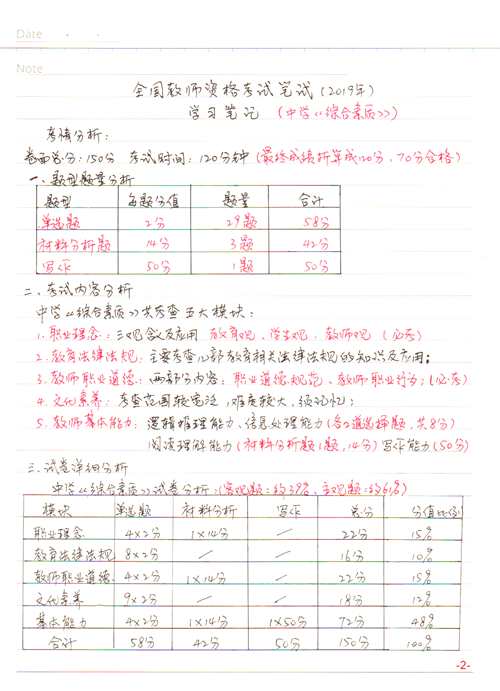 Date · ·
Note
全国教师资格考试笔试(2019年)
学习笔记 (中学《综合素质》)
考情分析:
卷面总分:150分 考试时间:120分钟(最终成绩折算成120分,70分合格)
一、题型题量分析
题型 每题分值 题量 合计
单选题 2分 29题 58分
材料分析题 14分 3题 42分
写作 50分 1题 50分
二、考试内容分析
中学《综合素质》共考查五大模块:
1.职业理念:三观含义及应用 教育观、学生观、教师观 (必考)
2.教育法律法规:主要考查几部教育相关法律法规的知识及应用;
3.教师职业道德:两部分内容:职业道德规范、教师职业行为;(必考)
4.文化素养:考查范围较宽泛,难度较大、须记忆;
5.教师基本能力:逻辑推理能力、信息处理能力(各2道选择题,共8分)
阅读理解能力(材料分析题1题,14分)写作能力(50分)
三、试卷详细分析
中学《综合素质》试卷分析:(客观题:约39%、主观题:约61%)
模块 单选题 材料分析 写作 总分 分值比例
职业理念 4×2分 1×14分 / 22分 15%
教育法律法规 8×2分 / / 16分 10%
教师职业道德 4×2分 1×14分 / 22分 15%
文化素养 9×2分 / / 18分 12%
基本能力 4×2分 1×14分 1×50分 72分 48%
合计 58分 42分 50分 150分 100%
-2-